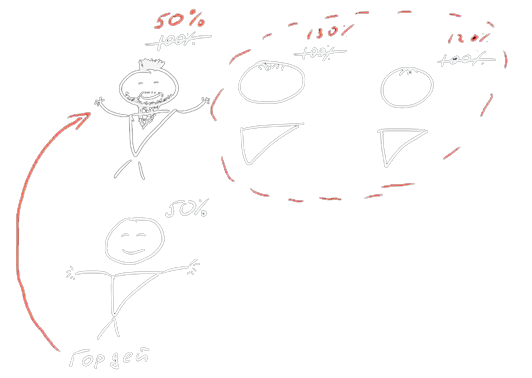 50%
100%
130%
100%
120%
100%
50%
Гордей